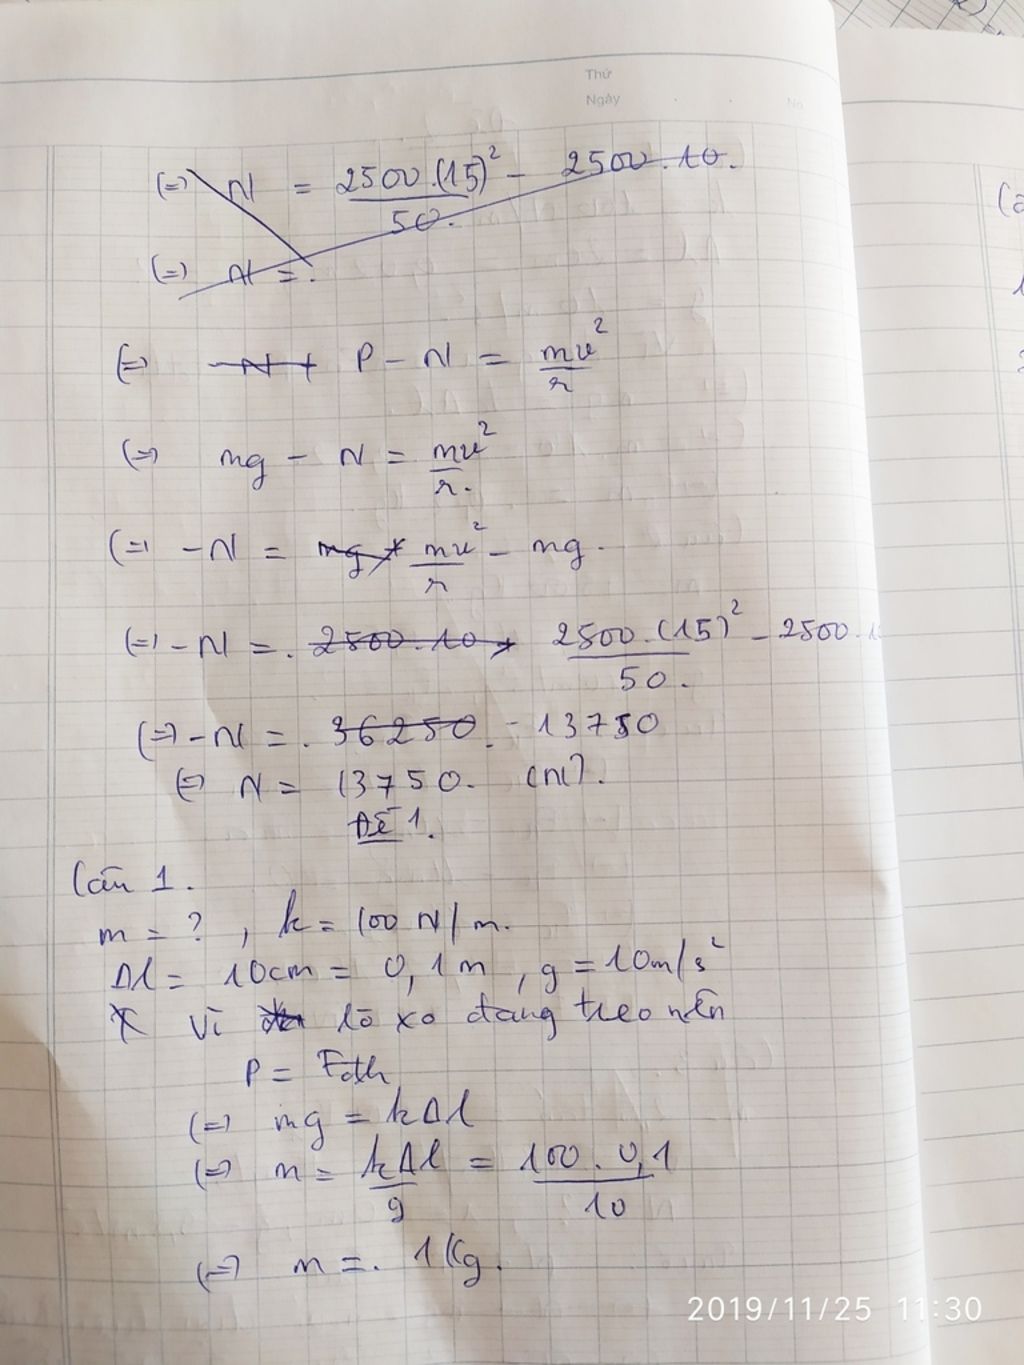 Thứ
Ngày No
(=) N = 2500.(15)² / 50. - 2500.10.
(=) N = .
(=) N + P - N = mv² / r
(=) mg - N = mv² / r.
(=) -N = mg + mv² / r - mg.
(=) -N = . 2500.10 + 2500.(15)² / 50. - 2500.
(=) -N = . 36250. -13750
(=) N = 13750. (N).
ĐỀ 1.
Câu 1.
m = ? , k = 100 N/m.
Δl = 10cm = 0,1m , g = 10m/s²
Vì lò xo đang treo nên
P = Fđh
(=) mg = kΔl
(=) m = kΔl / g = 100.0,1 / 10
(=) m = . 1Kg.
2019/11/25 11:30